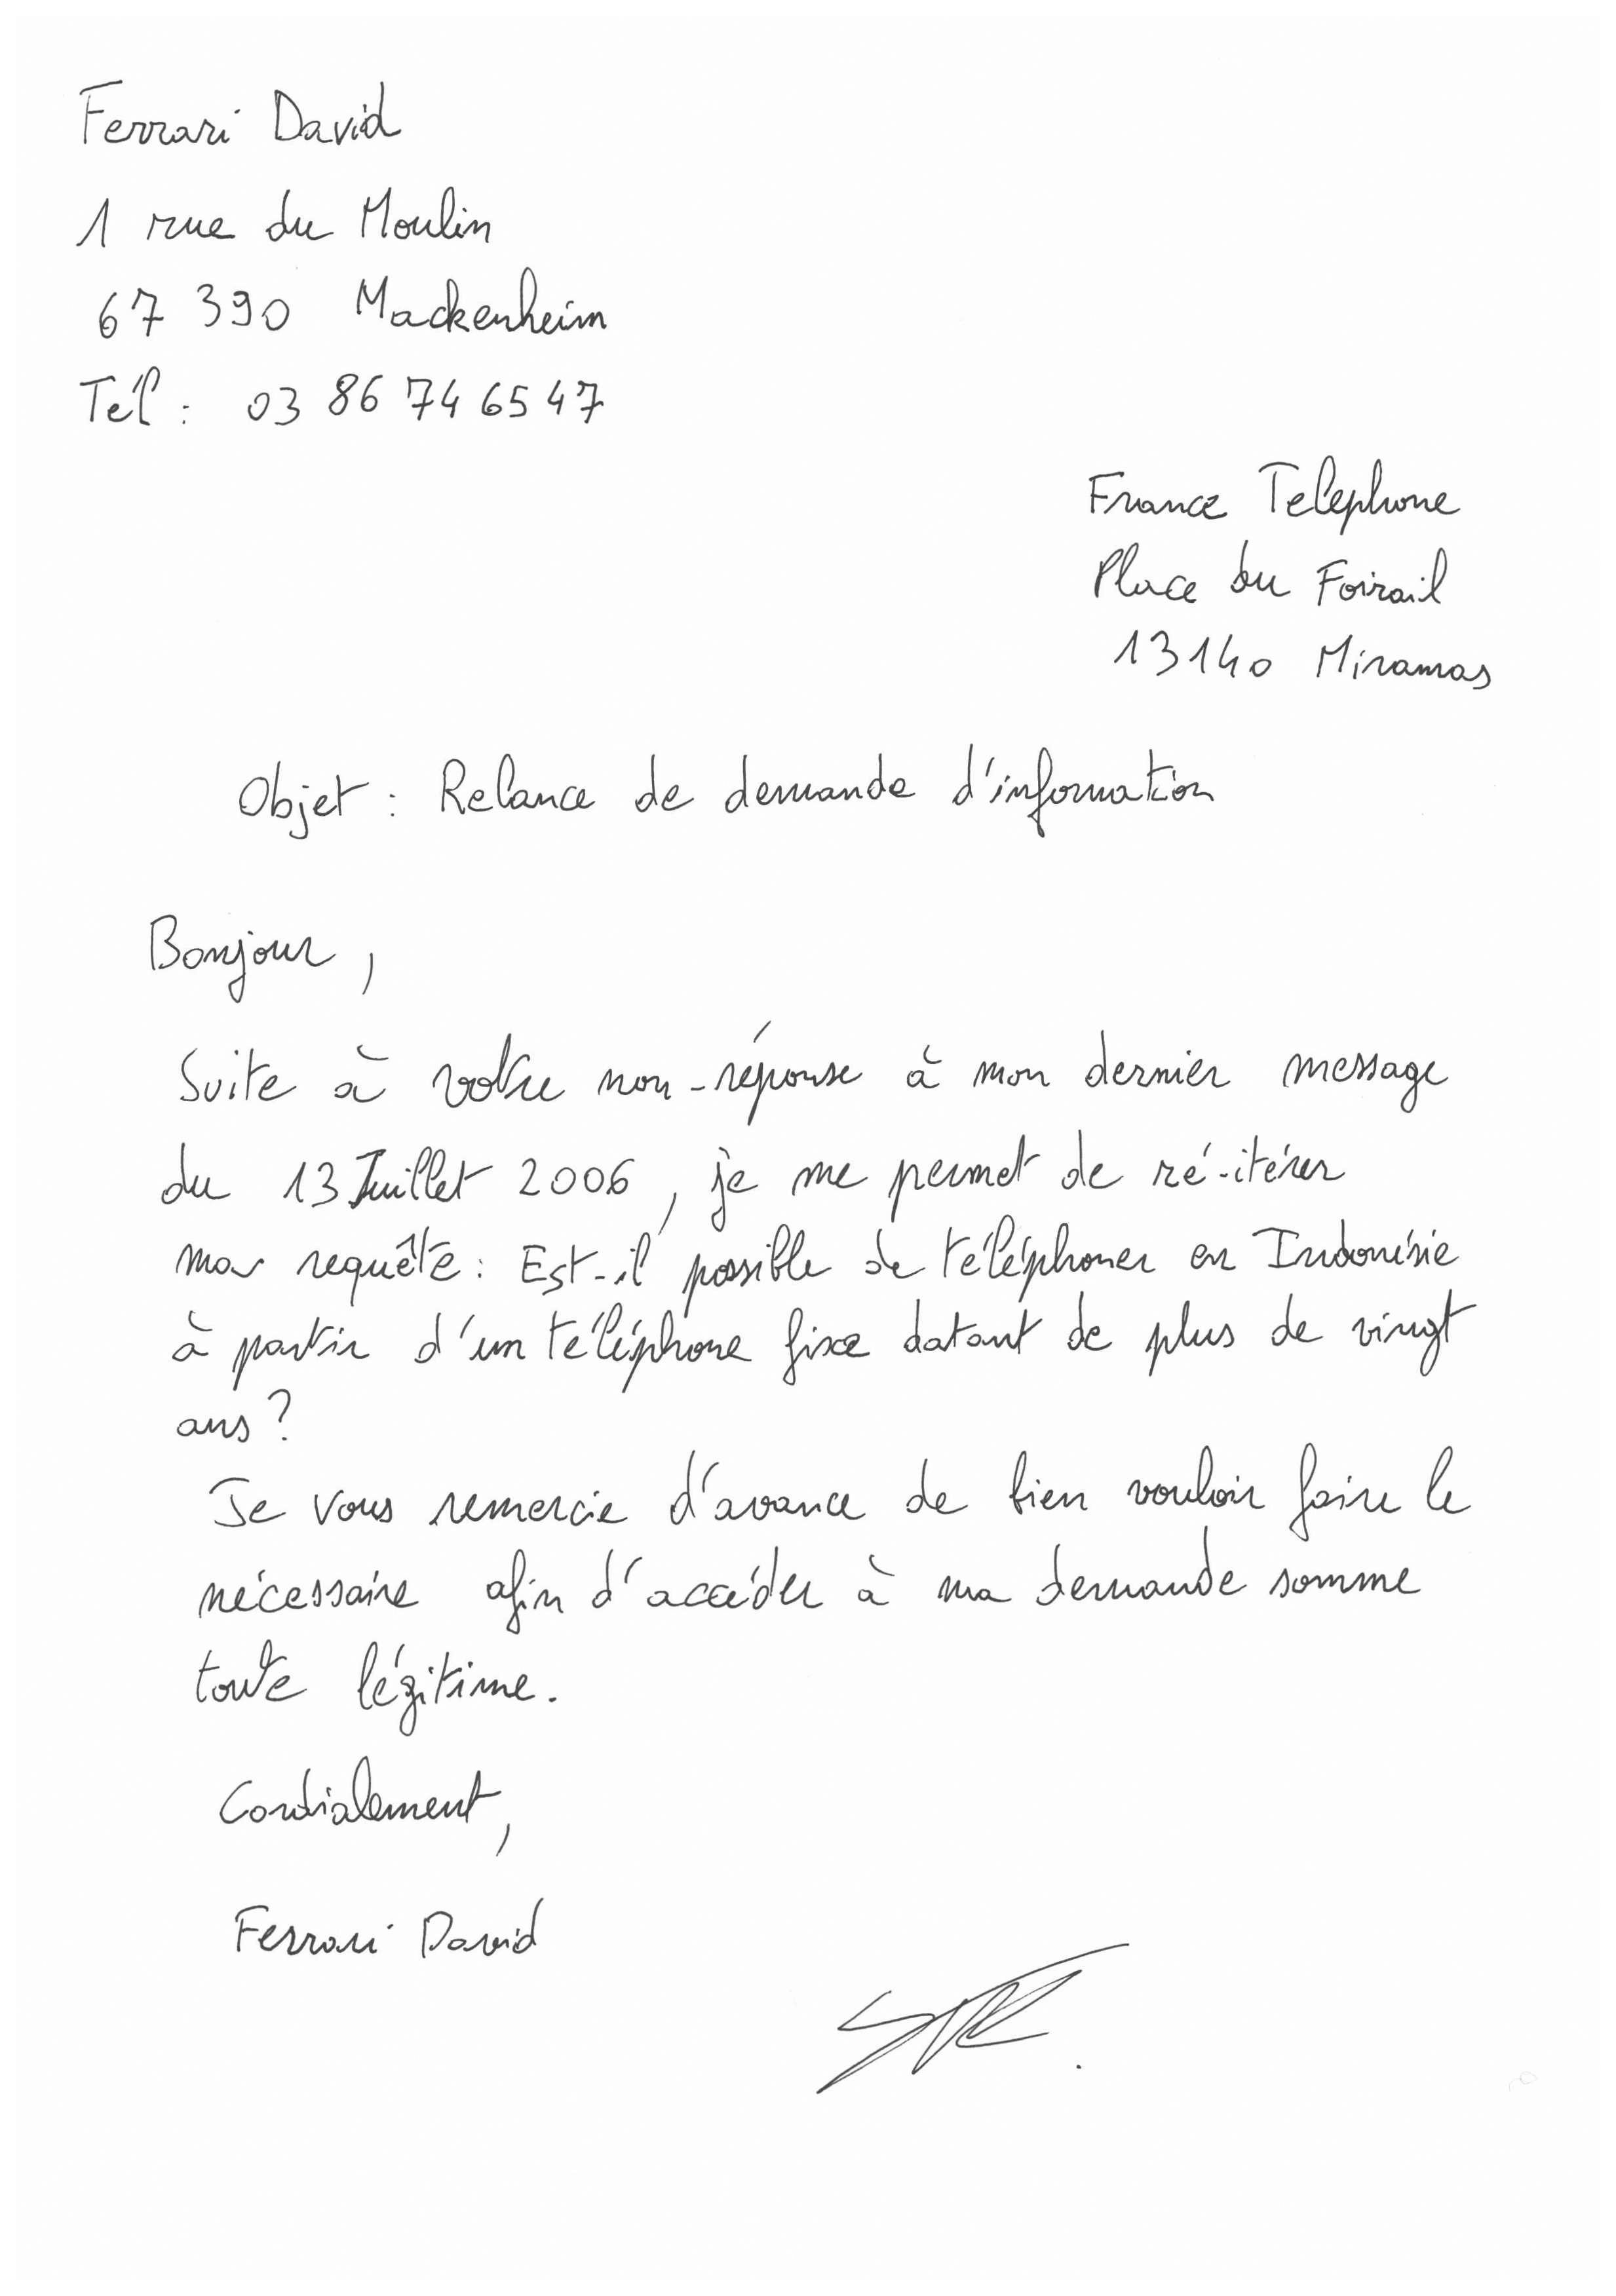 Ferrari David
1 rue du Moulin
67 390 Mackenheim
Tél : 03 86 74 65 47
France Telephone
Place du Foirail
13140 Miramas
Objet : Relance de demande d'information
Bonjour,
Suite à votre non-réponse à mon dernier message
du 13 Juillet 2006, je me permet de ré-itérer
ma requête : Est-il possible de téléphoner en Indonésie
à partir d'un téléphone fixe datant de plus de vingt
ans ?
Je vous remercie d'avance de bien vouloir faire le
nécessaire afin d'accéder à ma demande somme
toute légitime.
Cordialement,
Ferrari David